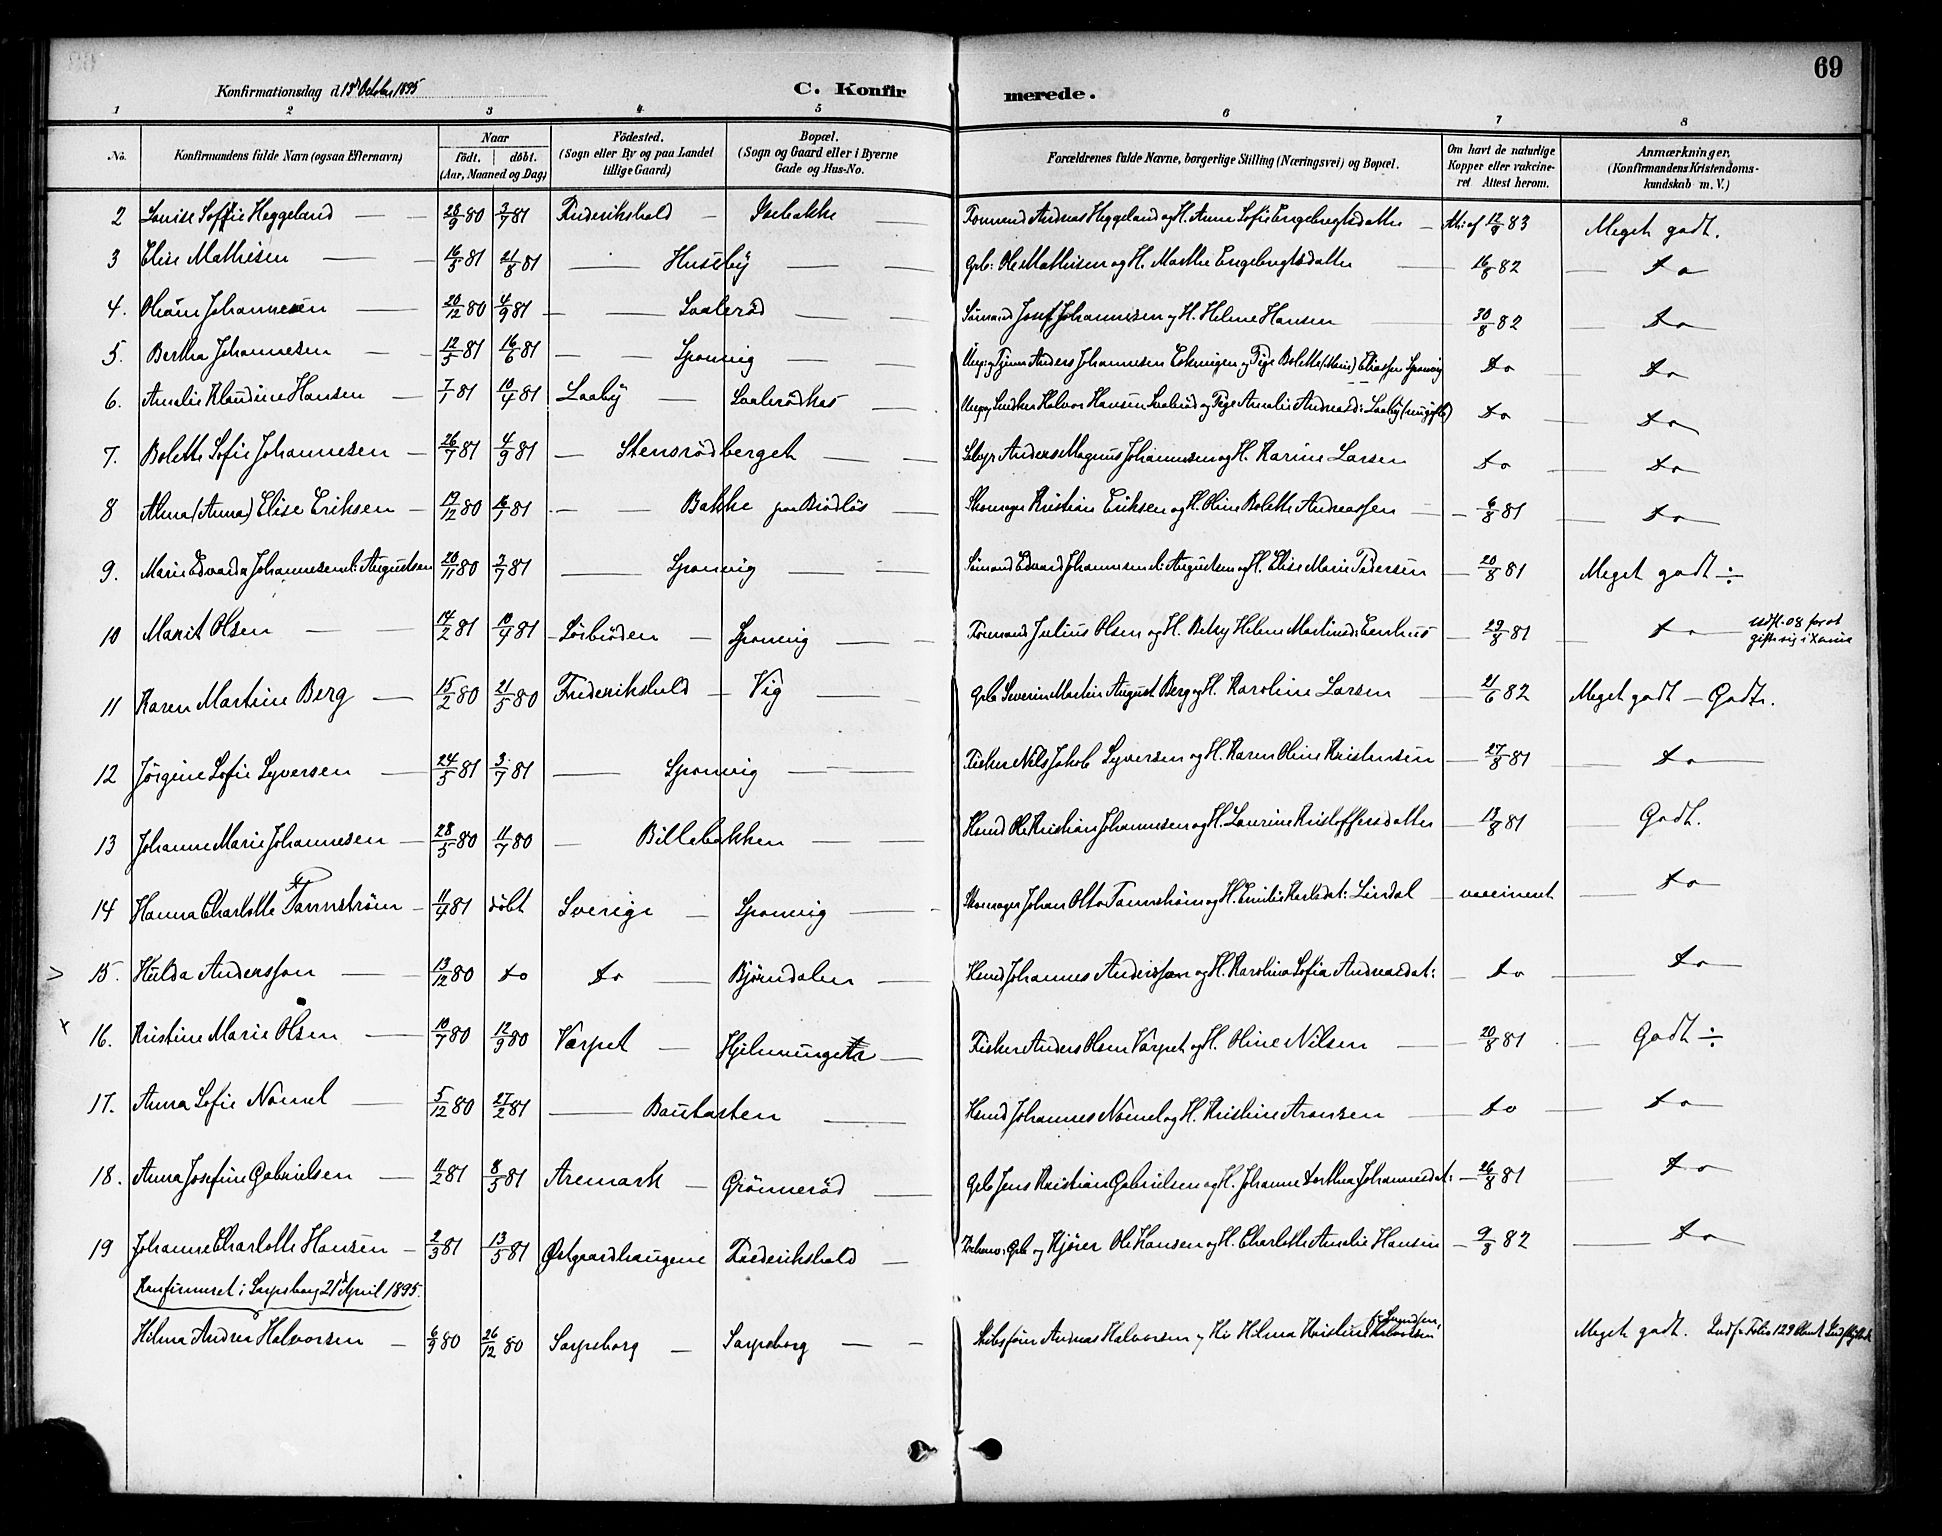 69
Konfirmationsdag d. 13de October 1895
C. Konfirmerede.
1 2 3 4 5 6 7 8
No. Konfirmandens fulde Navn (ogsaa Efternavn) Naar født. døbt. (Aar, Maaned og Dag) Fødested. (Sogn eller By og paa Landet tillige Gaard) Bopæl. (Sogn og Gaard eller i Byerne Gade og Hus-No. Forældrenes fulde Navne, borgerlige Stilling (Næringsvei) og Bopæl. Om havt de naturlige Kopper eller vakcineret Attest herom. Anmærkninger, (Konfirmandens Kristendomskundskab m. V.)
2 Lovise Soffie Heggeland — 28/9 80 3/7 81 Frederikshald — Isebakke — Formand Andreas Heggeland og H. Anne Sofie Engebregtsdatter — At: af 12/9 83 Meget godt.
3 Elise Mathisen — 16/5 81 21/8 81 — Huseby — Grb: Ole Mathisen og H. Marthe Engebregtsdatter — 16/8 82 — do
4. Johannesen — 20/12 80 4/9 81 — Saalerød — Sømand Josef Johannisen og H. Helene Hansen — 30/8 82 — do
5. Bertha Johannesen — 12/3 81 16/6 81 — Sponvig — Ungk: Tjener Anders Johannesen og Pige Bolette (Marie) Eliassen Sponvig do — do
6. Amalie Klaudine Hansen — 7/1 81 10/4 81 Laaby — Saalerødkas — Ungk Halvor Hansen Saalerød og Pige Amalie Andreasd: Laaby (ungift) do — do
7. Bolette Sofie Johannesen — 26/7 81 4/9 81 — Stensrødberget — Selvejr Anders Magnus Johannesen og H. Karine Larsen do — do
8 Alma (Anna) Elise Eriksen — 19/12 80 16/7 81 — Bakke paa Brødløs — Skomager Kristian Eriksen og H. Oline Bolette Andreassen — 6/8 81 — do
9. Marie Edvarda Johannesen l: Augustsen 20/11 80 3/7 81 — Sponvig — Sømand Edvard Johannesen l: Augustsen og H. Elise Marie Pedersen — 20/8 81 Meget godt ÷
10 Marit Olsen — 14/2 81 10/4 81 Sørbrøden — Sponvig — Formand Julius Olsen og H. Betsy Helene Martined: — 29/8 81 — do — udst. 08 for at gifte sig i
11 Karen Martine Berg — 15/2 80 21/5 80 Frederikshald — Vig — Grb Severin Martin August Berg og H. Karoline Larsen — 21/6 82 Meget godt — Godt.
12 Jørgine Sofie Syversen — 24/5 81 3/7 81 — Sponvig — Fisker Nils Jakob Syversen og H. Karen Oline Kristensen — 27/8 81 — do
13 Johanne Marie Johannesen — 28/5 80 11/7 80 — Billebakken — Hmd Ole Kristian Johannesen og H. Laurine Kristoffersdatter — 13/8 81 — Godt.
14 Hanna Charlotte Tannstrøm — 11/4 81 døbt Sverige — Sponvig — Skomager Johan Otto Tannstrøm og H. Emilie Karlsdat: Lindal — vaccineret — do
15. Hulda Andersson — 13/12 80 do do — Bjørndalen — Hmd Johannes Andersson og H. Karolina Sofia Andreasdat: — do — do
16. Kristine Marie Olsen — 10/7 80 12/9 80 Varpet — Hjelmunget — Fisker Anders Olsen Varpet og H. Oline Nilsen — 20/8 81 — Godt ÷
17. Anna Sofie Nømel — 5/12 80 27/2 81 — Bautasten — Hmd Johannes Nømel og H. Kristine Aronsen — do — do
18. Anna Josefine Gabrielsen — 11/2 81 8/5 81 Aremark — Grønnerød — Grb Jens Kristian Gabrielsen og H. Johanne Dorthea Johannesdat: — 26/8 81 — do
19 Johanne Charlotte Hansen — 2/3 81 13/5 81 Østgaardhaugene Frederikshald — Grb og Kjører Ole Hansen og H. Charlotte Amalie Hansen — 9/8 82 — do
Konfirmeret i Sarpsborg 21de April 1895.
Hilma Andrea Halvorsen — 6/9 80 26/12 80 Sarpsborg — Sarpsborg — Skibsfører Andreas Halvorsen og H. Hilma Kristine Halvorsen Meget godt. Indf. Folio 129